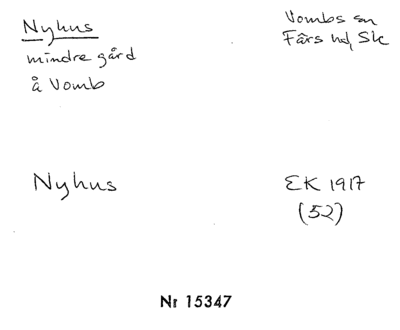 Nyhus
mindre gård
å Vomb
Vombs sn
Färs hd, Sk
Nyhus
EK 1917
(52)
Nr 15347